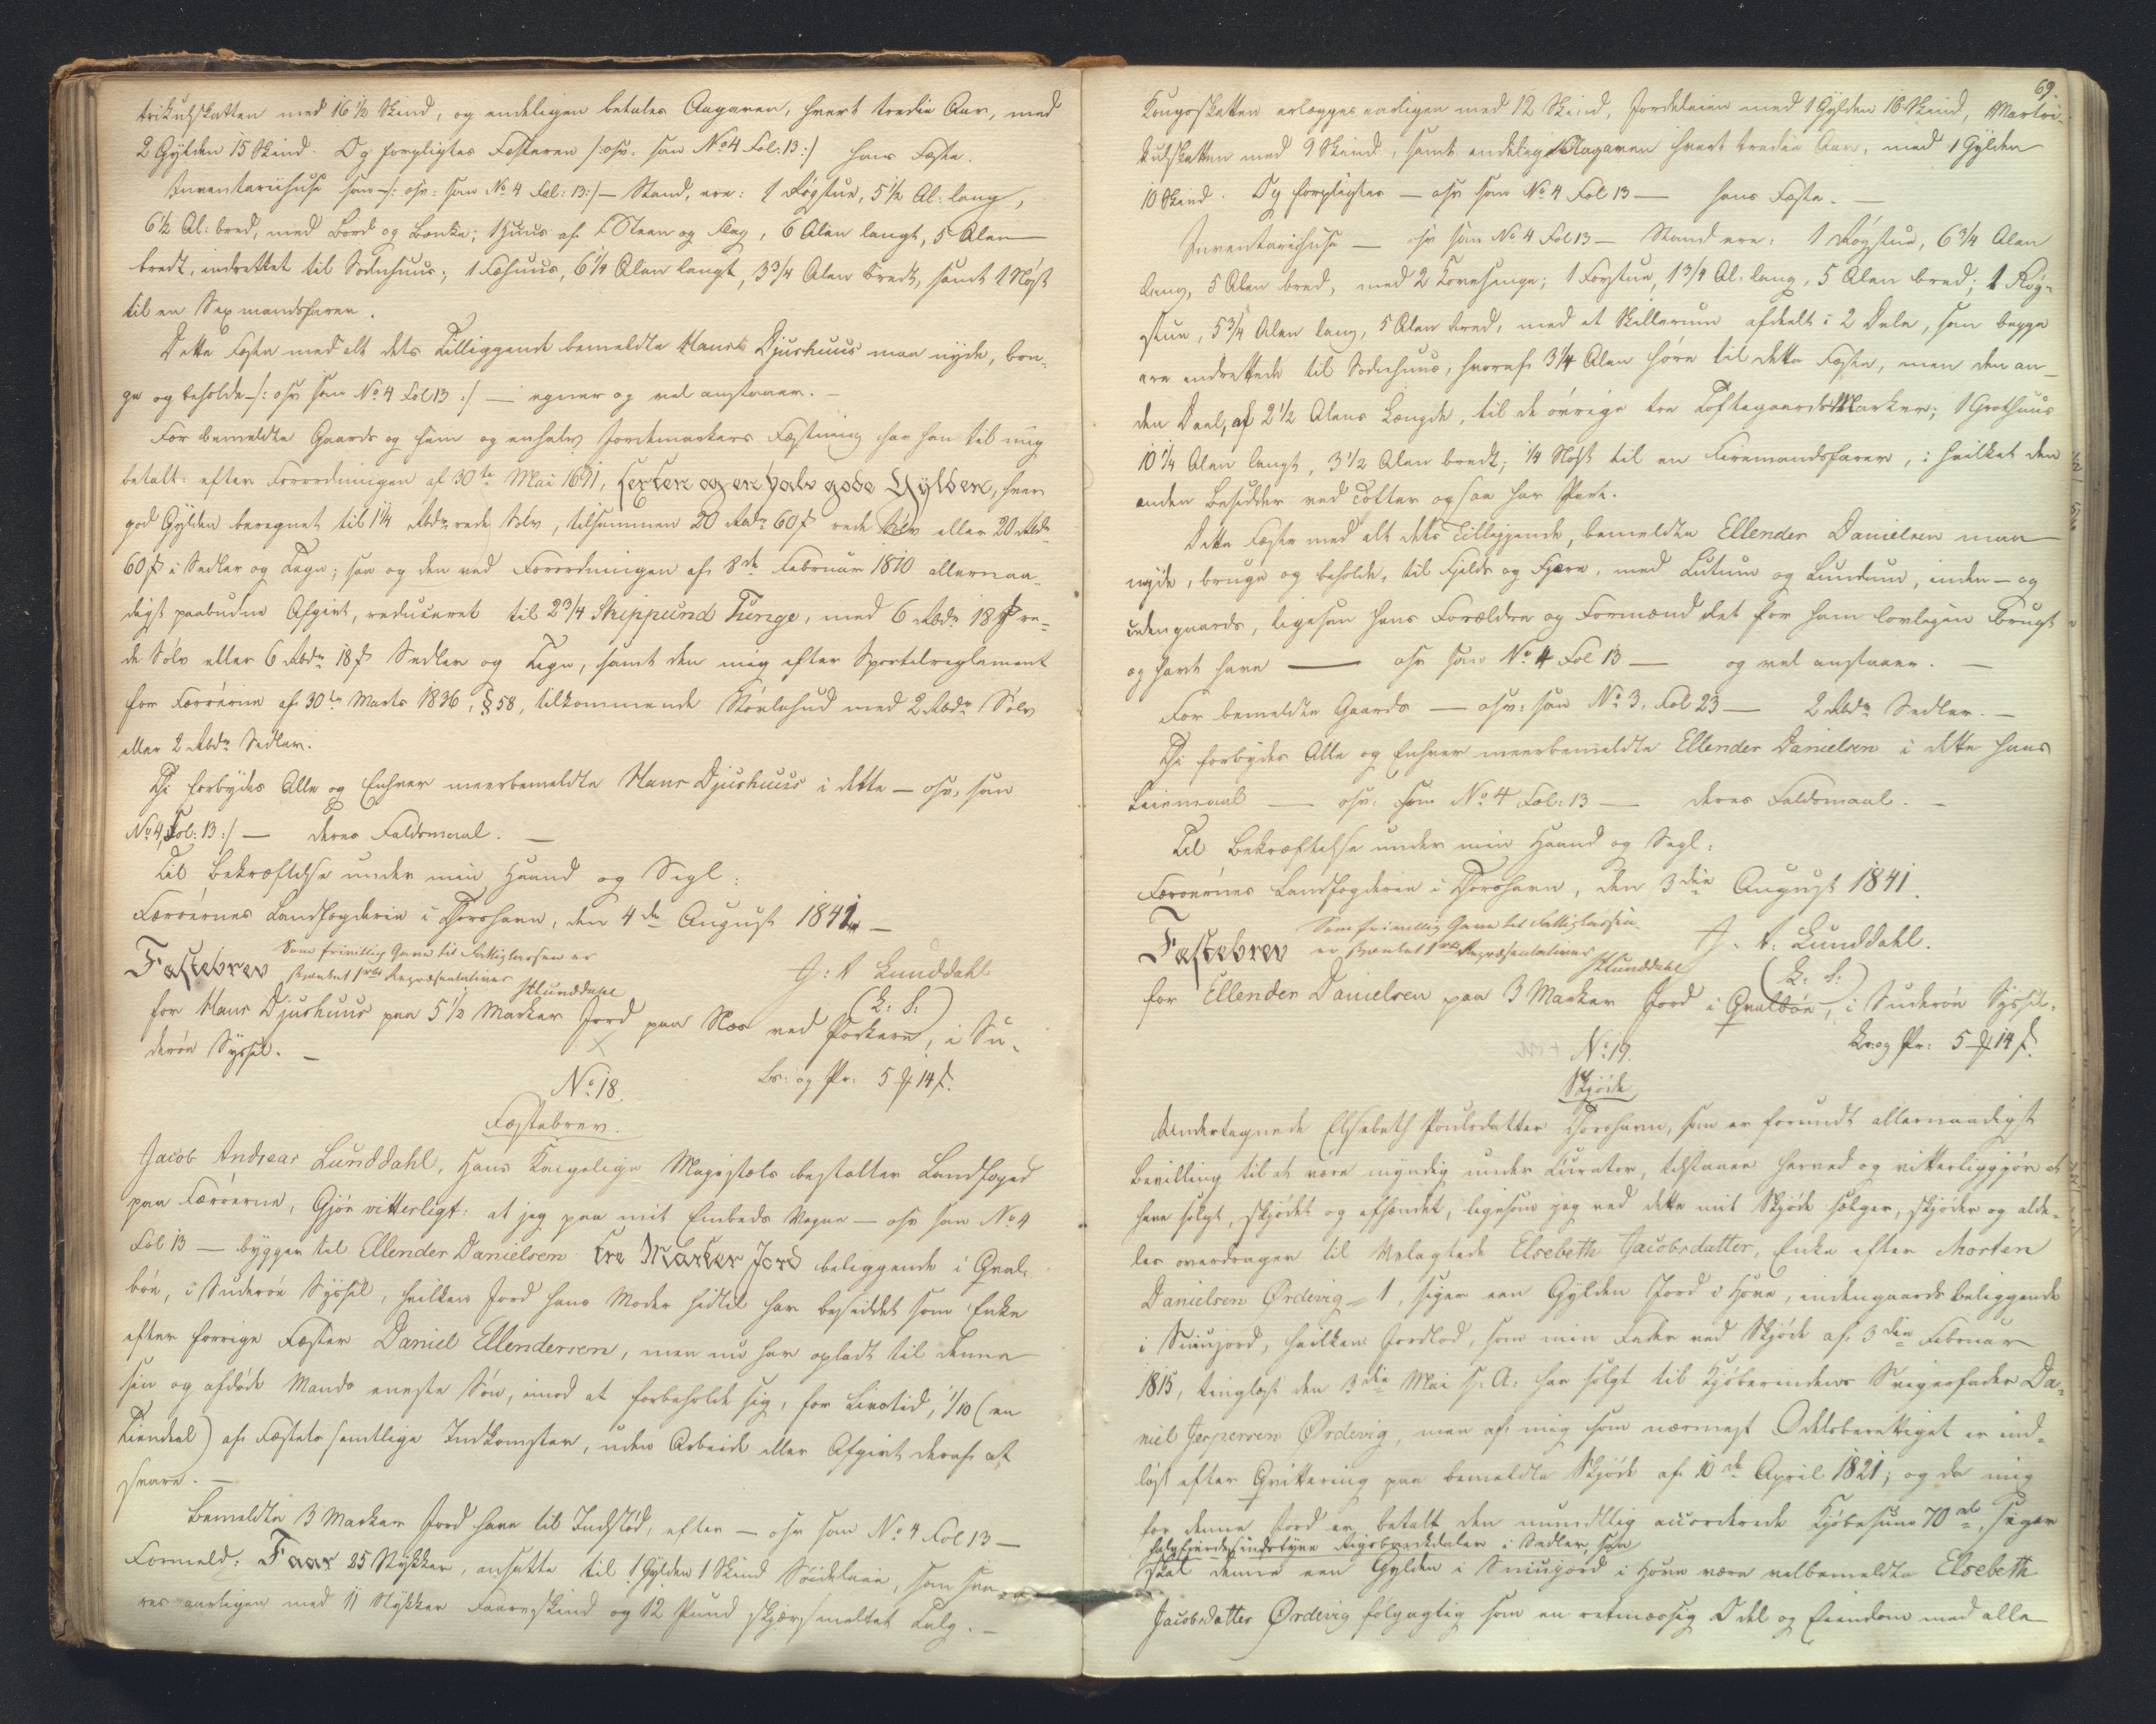 trikulskatten med 16 1/2 Skind, og endeligen betales Aagaven, hvert tredie Aar, med
2 Gylden 15 Skind. Og forpligtes Fæsteren /: osv. som No 4 Fol: 13 :/ hans Fæste.
Inventariihuse som -/: osv: som No 4 Fol: 13 :/ - Stand, ere: 1 Røgstue, 5 1/2 Al: lang,
6 1/2 Al: bred, med Bord og Bænke; 1 Huus af Steen og Flag, 6 Alen langt, 5 Alen
bredt, indrettet til Sodnhuus; 1 Fæhuus, 6 1/4 Alen langt, 3 3/4 Alen bredt, samt 1 Nøst
til en Sexmandsfarer.
Dette Fæste med alt dets Tilliggende bemeldte Hans Djurhuus maa nyde, bru-
ge og beholde -/: osv som No 4 Fol 13 :/ - egner og vel anstaaer. -
For bemeldte Gaards og fem og en halv Jordemarkers Fæstning har han til mig
betalt: efter Forordningen af 30te Mai 1691, sexten og en halv gode Gylden, hver
god Gylden beregnet til 1 1/4 Rbdr rede Sølv, tilsammen 20 Rbdr 60 s rede Sølv eller 20 Rbdr
60 s i Sedler og Tegn; saa og den ved Forordningen af 8de Februar 1810 allernaa-
digst paabudne Afgivt, reduceret til 2 3/4 Skippund Tunge, med 6 Rbdr 18 s re-
de Sølv eller 6 Rbdr 18 s Sedler og Tegn, samt den mig efter Sportelreglement
for Færøerne af 30te Marts 1836, § 58, tilkommende Støvlehud med 2 Rbdr Sølv
eller 2 Rbdr Sedler.
Thi forbydes Alle og Enhver meerbemeldte Hans Djurhuus i dette - osv, som
No 4, Fol: 13 :/ - deres Faldsmaal. -
Til Bekræftelse under min Haand og Segl:
Færøernes Landfogderie i Thorshavn, den 4de August 1841. -
Fæstebrev Som frivillig Gave til Fattigkassen er
skænket 1 rbd Repræsentativer JALunddahl J: A Lunddahl
(L: S:)
for Hans Djurhuus paa 5 1/2 Marker Jord paa Næs ved Porkere, i Su-
derøe Syssel. -
No 18. Br: og Pr: 5 14 s.
Fæstebrev.
Jacob Andreas Lunddahl, Hans Kongelige Majestæts bestalter Landfoged
paa Færøerne, Gjør vitterligt: at jeg paa mit Embeds Vegne - osv som No 4
Fol 13 - bygger til Ellender Danielsen tre Marker Jord beliggende i Qval-
bøe, i Suderøe Syssel, hvilken Jord hans Moder hidtil har besiddet som Enke
efter forrige Fæster Daniel Ellendersen, men nu har opladt til denne
sin og afdøde Mands eneste Søn, imod at forbeholde sig, for Livstid, 1/10 (en
Tiendeel) af Fæstets samtlige Indkomster, uden Arbeide eller Afgivt deraf at
svare. -
Bemeldte 3 Marker Jord have til Indstød, efter - osv som No 4 Fol 13 -
Formeld: Faar 25 Stykker, ansatte til 1 Gylden 1 Skind Søideleie, som sva-
res aarligen med 11 Stykker Faareskind og 12 Pund skjærsmeltet Talg. -
69.
Kongsskatten erlægges aarligen med 12 Skind, Jordeleien med 1 Gylden 16 Skind, Matri-
kulskatten med 9 Skind, samt endelig Aagaven hvert tredie Aar, med 1 Gylden
10 Skind. Og forpligtes - osv som No 4 Fol 13 - hans Fæste. -
Inventariihuse - osv som No 4 Fol 13 - Stand ere: 1 Røgstue, 6 3/4 Alen
lang, 5 Alen bred, med 2 Kovesenge; 1 Forstue, 1 3/4 Al. lang, 5 Alen bred; 1 Røg-
stue, 5 3/4 Alen lang, 5 Alen bred, med et Skillerum afdeelt i 2 Dele, som begge
ere indrettede til Sodnhuus, hvoraf 3 1/4 Alen høre til dette Fæste, men den an-
den Deel, af 2 1/2 Alens Længde, til de øvrige tre Toftegaards Marker; 1 Grothuus
10 1/4 Alen langt, 3 1/2 Alen bredt; 1/4 Nøst til en Firemandsfarer, i hvilket den
anden Besidder ved Tofter ogsaa har Part.
Dette Fæste med alt dets Tilliggende, bemeldte Ellender Danielsen maa
nyde, bruge og beholde, til Fjelds og Fjære, med Lutum og Lundum, inden- og
udengaards, ligesom hans Forældre og Formænd det før ham lovligen brugt
og havt have - osv som No 4 Fol 13 - og vel anstaaer. -
For bemeldte Gaards - osv: som No 3, Fol 23 - 2 Rbdr Sedler. -
Thi forbydes Alle og Enhver meerbemeldte Ellender Danielsen i dette hans
Leiemaal - osv: som No 4 Fol: 13 - deres Faldsmaal. -
Til Bekræftelse under min Haand og Segl:
Færøernes Landfogderie i Thorshavn, den 3die August 1841.
Fæstebrev Som frivillig Gave til Fattigkassen
er skænket 1 rbd Repræsentativer JALunddahl J. A. Lunddahl.
(L: S:)
for Ellender Danielsen paa 3 Marker Jord i Qvalbøe, i Suderøe Syssel.
No 19. Br: og Pr: 5 14 s.
Skjøde
Undertegnede Elsebeth Poulsdatter Thorshavn, som er forundt allernaadigst
Bevilling til at være myndig under Curator, tilstaaer herved og vitterliggjør at
have solgt, skjødet og afhændet, ligesom jeg ved dette mit Skjøde sælger, skjøder og alde-
les overdrager til Velagtede Elsebeth Jacobsdatter, Enke efter Morten
Danielsen Ørdevig = 1, siger een Gylden Jord i Hove, indengaards beliggende
i Sniugjord, hvilken Jordlod, som min Fader ved Skjøde af 3die Februar
1815, tinglæst den 3die Mai s: A: har solgt til Kjøberindens Svigerfader Da-
niel Jespersen Ørdevig, men af mig som nærmest Odelsberettiget er ind-
løst efter Qvittering paa bemeldte Skjøde af 10de April 1821; og da mig
for denne Jord er betalt den mundtlig accorderede Kjøbesum 70 rd, siger
halvfjerdesindstyve Rigsbankdaler i Sedler, saa
skal denne een Gylden i Sniugjord i Hove være velbemeldte Elsebeth
Jacobsdatter Ørdevig følgagtig som en retmæssig Odel og Eiendom med alle